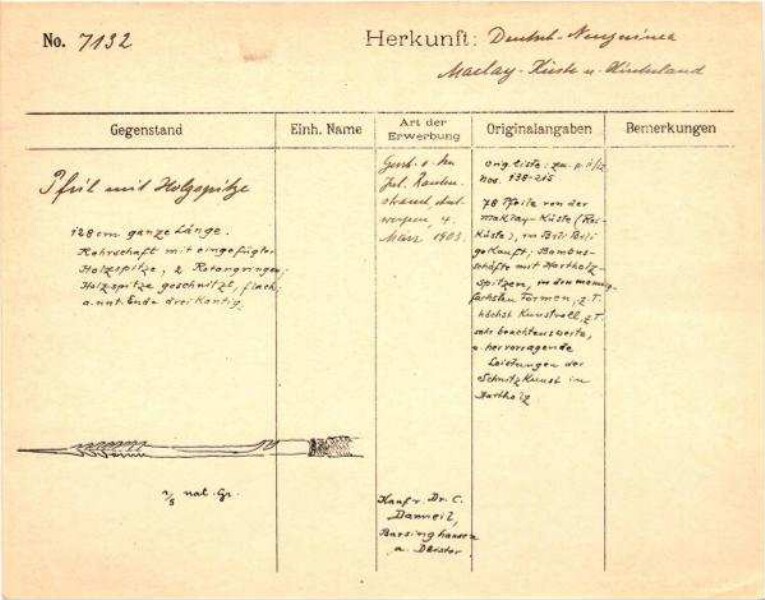 No. 7132
Herkunft: Deutsch-Neuguinea
Maclay-Küste u. Hinterland
Gegenstand
Einh. Name
Art der
Erwerbung
Originalangaben
Bemerkungen
Pfeil mit Holzspitze
128 cm ganze Länge.
Rohrschaft mit eingefügter
Holzspitze, 2 Rotangringen;
Holzspitze geschnitzt, flach;
a. unt. Ende dreikantig.
2/5 nat. Gr.
Jul.
März 1903.
Kauf v. Dr. C.
Damneil,
Barsinghausen
a. Deister
Orig. liste:
nos. 138-215
78 Pfeile von der
Maklay-Küste (Rai-
Küste), in Bili Bili
gekauft; Bambus-
schäfte mit Hartholz-
spitzen, in den mannig-
fachsten Formen, z.T.
höchst kunstvoll, z.T.
sehr beachtenswerte,
u. hervorragende
Leistungen der
Schnitzkunst in
Hartholz